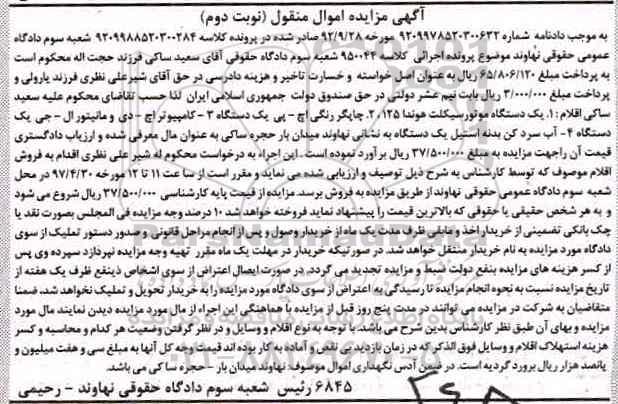 آگهی مزایده اموال منقول (نوبت دوم)
به موجب دادنامه شماره ۹۲۰۹۹۷۸۵۲۰۳۰۰۶۳۲ مورخه ۹۲/۹/۲۸ صادر شده در پرونده کلاسه ۹۲۰۹۹۸۸۵۲۰۳۰۰۲۸۴ شعبه سوم دادگاه
عمومی حقوقی نهاوند موضوع پرونده اجرائی کلاسه ۹۵۰۰۴۴ شعبه سوم دادگاه حقوقی آقای سعید ساکی فرزند حجت اله محکوم است
به پرداخت مبلغ ۶۵/۸۰۶/۱۲۰ ریال به عنوان اصل خواسته و خسارت تاخیر و هزینه دادرسی در حق آقای شیرعلی نظری فرزند یارولی و
پرداخت مبلغ ۳/۰۰۰/۰۰۰ ریال بابت نیم عشر دولتی در حق صندوق دولت جمهوری اسلامی ایران لذا حسب تقاضای محکوم علیه سعید
ساکی اقلام : ۱. یک دستگاه موتورسیکلت هوندا ۱۲۵، ۲. چاپگر رنگی اچ - پی یک دستگاه ۳ - کامپیوتر اچ - دی و مانیتور ال - جی یک
دستگاه ۴ - آب سرد کن بدنه استیل یک دستگاه به نشانی نهاوند میدان بار حجره ساکی به عنوان مال معرفی شده و ارزیاب دادگستری
قیمت آن را جهت مزایده به مبلغ ۳۷/۵۰۰/۰۰۰ ریال بر آورد نموده است . این اجراء به درخواست محکوم له شیر علی نظری اقدام به فروش
اقلام موصوف که توسط کارشناس به شرح ذیل توصیف و ارزیابی شده می نماید و مقرر است از ساعت ۱۱ تا ۱۲ مورخه ۹۷/۴/۳۰ در محل
شعبه سوم دادگاه عمومی حقوقی نهاوند از طریق مزایده به فروش برسد. مزایده از قیمت پایه کارشناسی ۳۷/۵۰۰/۰۰۰ ریال شروع می شود
و به هر شخص حقیقی یا حقوقی که بالاترین قیمت را پیشنهاد نماید فروخته خواهد شد ۱۰ درصد وجه مزایده فی المجلس بصورت نقد یا
چک بانکی تضمینی از خریدار اخذ و مابقی ظرف مدت یک ماه از خریدار وصول و پس از انجام مراحل قانونی و صدور دستور تملیک از سوی
دادگاه مورد مزایده به نام خریدار منتقل خواهد شد. در صورتیکه خریدار در مهلت یک ماه مقرر تهیه وجه مزایده نپردازد سپرده وی پس
از کسر هزینه های مزایده بنفع دولت ضبط و مزایده تجدید می گردد. در صورت ایصال اعتراض از سوی اشخاص ذینفع ظرف یک هفته از
تاریخ مزایده نسبت به نحوه انجام مزایده تا رسیدگی به اعتراض از سوی دادگاه مورد مزایده را به خریدار تحویل و تملیک نخواهد شد، ضمنا
متقاضیان به شرکت در مزایده می توانند در مدت پنج روز قبل از مزایده با هماهنگی این اجراء از مال مورد مزایده دیدن نمایند مال مورد
مزایده و بهای آن طبق نظر کارشناس بدین شرح می باشد. با توجه به نوع اقلام و وسایل و در نظر گرفتن وضعیت هر کدام و محاسبه و کسر
هزینه استهلاک اقلام و وسایل فوق الذکر که در زمان بازدید بی نقص و آماده به کار بوده اند قیمت وجه کل آنها به مبلغ سی و هفت میلیون و
پانصد هزار ریال برورد گردیده است. در ضمن آدس نگهداری اموال موصوف: نهاوند میدان بار - حجره ساکی می باشد.
۶۸۴۵ رئیس شعبه سوم دادگاه حقوقی نهاوند - رحیمی